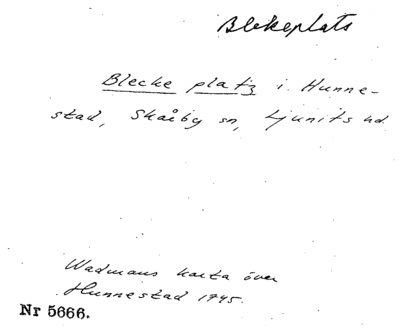 Blekeplats
Blecke platz i Hunne-
stad, Skårby sn, Ljunits hd.
Wadmans karta över
Hunnestad 1945.
Nr 5666.